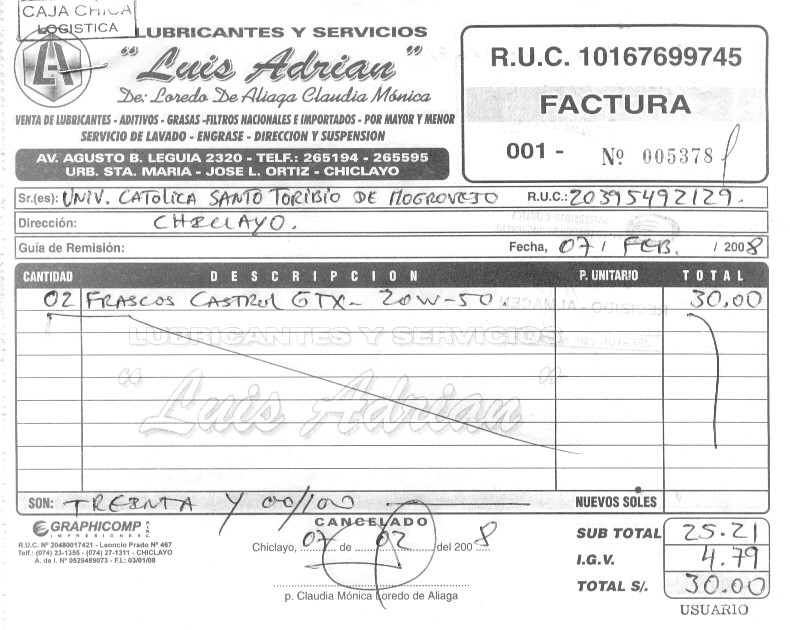 CAJA CHICA
LOGISTICA
LUBRICANTES Y SERVICIOS
"Luis Adrian"
De: Loredo De Aliaga Claudia Mónica
VENTA DE LUBRICANTES - ADITIVOS - GRASAS -FILTROS NACIONALES E IMPORTADOS - POR MAYOR Y MENOR
SERVICIO DE LAVADO - ENGRASE - DIRECCION Y SUSPENSION
AV. AGUSTO B. LEGUIA 2320 - TELF.: 265194 - 265595
URB. STA. MARIA - JOSE L. ORTIZ - CHICLAYO
R.U.C. 10167699745
FACTURA
001 - Nº 005378
Sr.(es): UNIV. CATOLICA SANTO TORIBIO DE MOGROVEJO R.U.C.: 20395492129.
Dirección: CHICLAYO.
Guía de Remisión: Fecha, 07 / FEB. / 2008
CANTIDAD DESCRIPCION P. UNITARIO TOTAL
02 FRASCOS CASTROL GTX- 20W-50. 30.00
LUBRICANTES Y SERVICIOS
"Luis Adrian"
SON: TREINTA Y 00/100 NUEVOS SOLES
GRAPHICOMP
IMPRESIONES
R.U.C. Nº 20480017421 - Leoncio Prado Nº 467
Telf.: (074) 23-1355 - (074) 27-1311 - CHICLAYO
A. de I. Nº 0529489073 - F.I.: 03/01/08
CANCELADO
Chiclayo, 07 de 02 del 2008
p. Claudia Mónica Loredo de Aliaga
SUB TOTAL 25.21
I.G.V. 4.79
TOTAL S/. 30.00
USUARIO